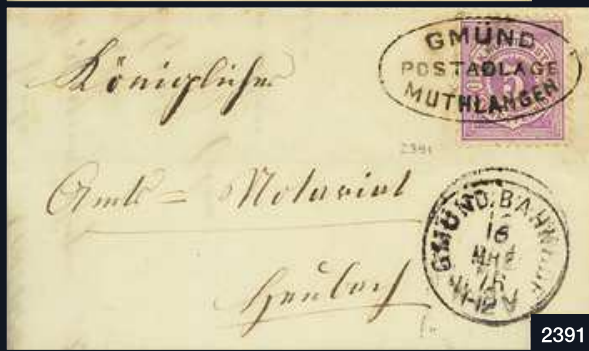 GMÜND
POSTABLAGE
MUTHLANGEN
5
Königliches
2391
Amts = Notariat
GMÜND.BAHNHOF
16
MRZ
11-12V
Heubach
2391